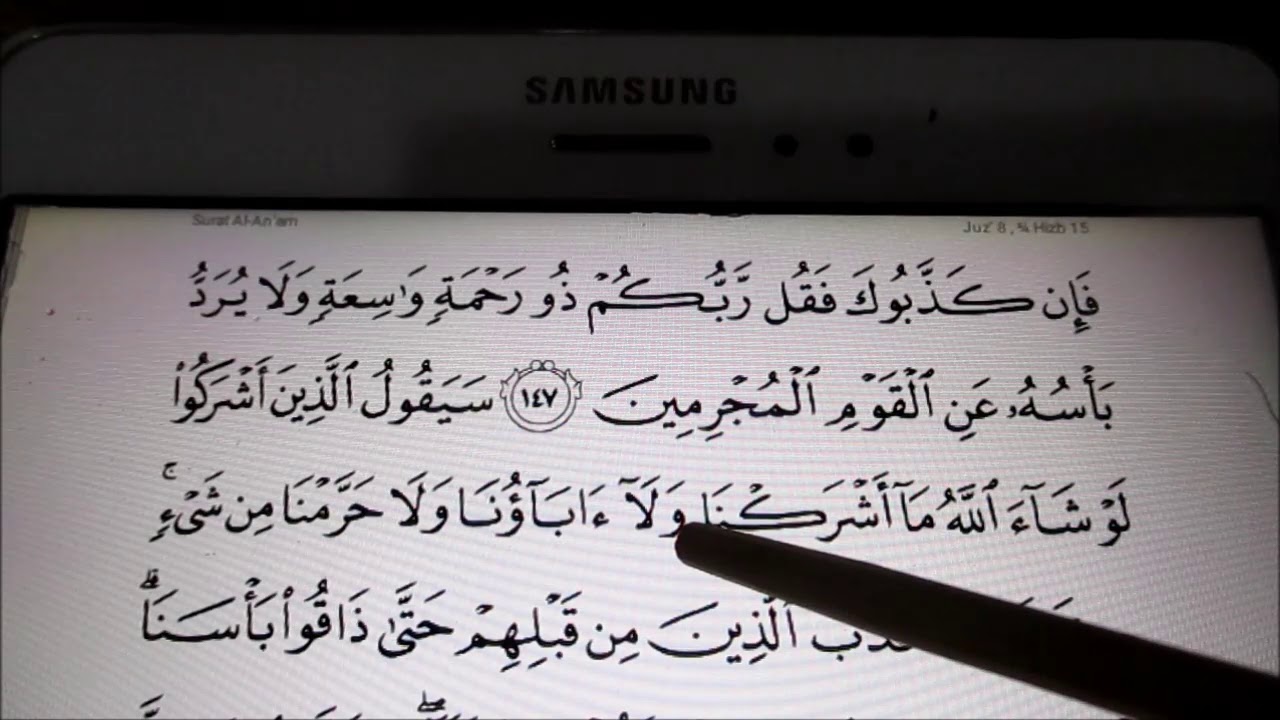 SAMSUNG
Surat Al-An'am
Juz' 8 , ¾ Hizb 15
فَإِن كَذَّبُوكَ فَقُل رَّبُّكُمْ ذُو رَحْمَةٍ وَٰسِعَةٍ وَلَا يُرَدُّ
بَأْسُهُۥ عَنِ ٱلْقَوْمِ ٱلْمُجْرِمِينَ ١٤٧ سَيَقُولُ ٱلَّذِينَ أَشْرَكُوا۟
لَوْ شَآءَ ٱللَّهُ مَآ أَشْرَكْنَا وَلَآ ءَابَآؤُنَا وَلَا حَرَّمْنَا مِن شَىْءٍ ۚ
ٱلَّذِينَ مِن قَبْلِهِمْ حَتَّىٰ ذَاقُوا۟ بَأْسَنَا ۗ